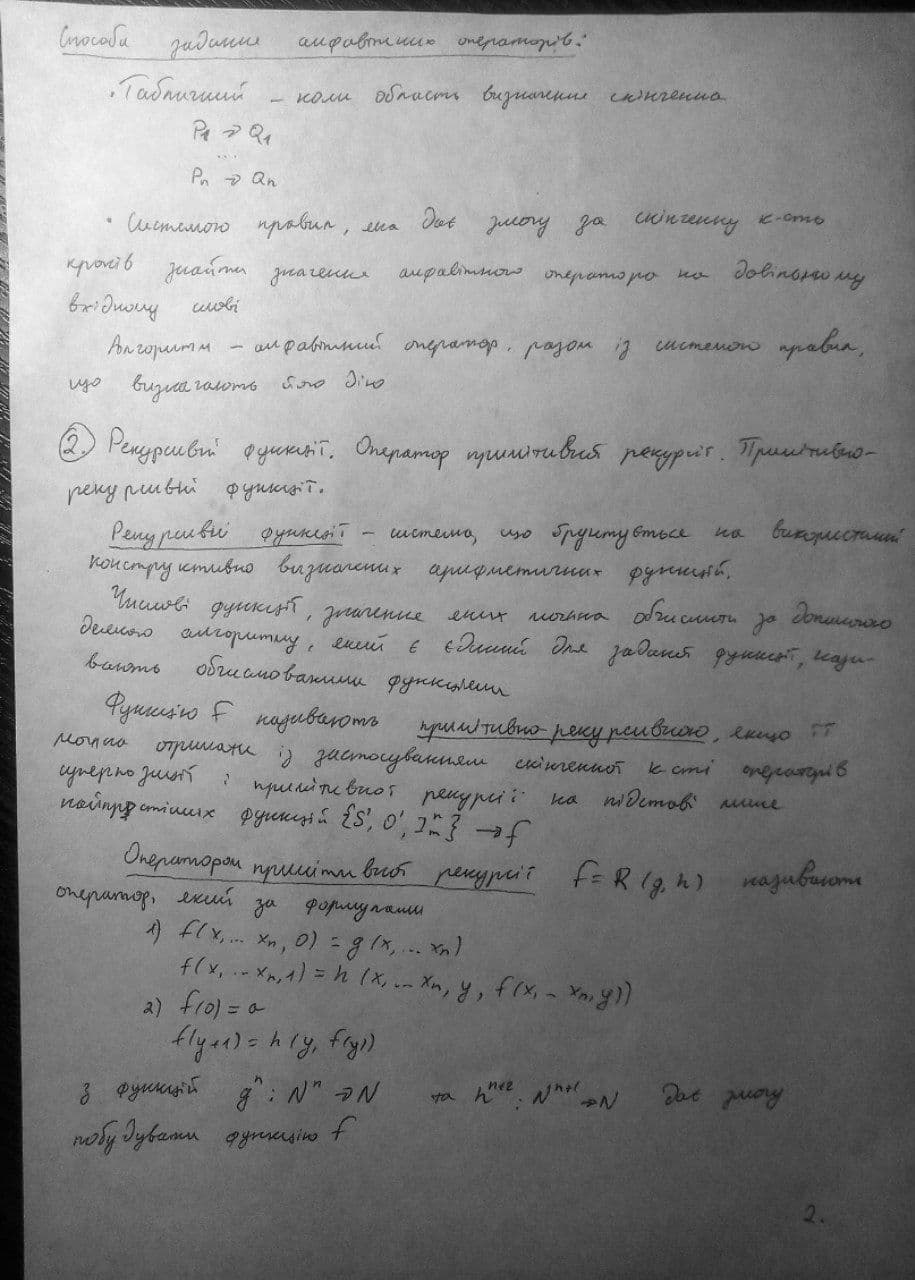 Способа задання алфавітних операторів:
· Табличний – коли область визначення скінченна
P1 → Q1
...
Pn → Qn
· Системою правил, яка дає змогу за скінченну к-сть
кроків знайти значення алфавітного оператора на довільному
вхідному слові
Алгоритм – алфавітний оператор, разом із системою правил,
що визначають його дію
2. Рекурсивні функції. Оператор примітивної рекурсії. Примітивно-
рекурсивні функції.
Рекурсивні функції – система, що ґрунтується на використанні
конструктивно визначених арифметичних функцій.
Числові функції, значення яких можна обчислити за допомогою
деякого алгоритму, який є єдиний для заданої функції, нази-
вають обчислюваними функціями
Функцію f називають примітивно-рекурсивною, якщо її
можна отримати із застосуванням скінченної к-сті операторів
суперпозиції і примітивної рекурсії на підставі лише
найпростіших функцій {S', O', I^n_m} → f
Оператором примітивної рекурсії f = R (g, h) називають
оператор, який за формулами
1) f(x, ... xn, 0) = g(x, ... xn)
f(x, ... xn, 1) = h (x, ... xn, y, f(x, – xn, y))
2) f(0) = a
f(y+1) = h(y, f(y))
з функцій g^n : N^n → N та h^n+2 : N^n+1 → N дає змогу
побудувати функцію f
2.